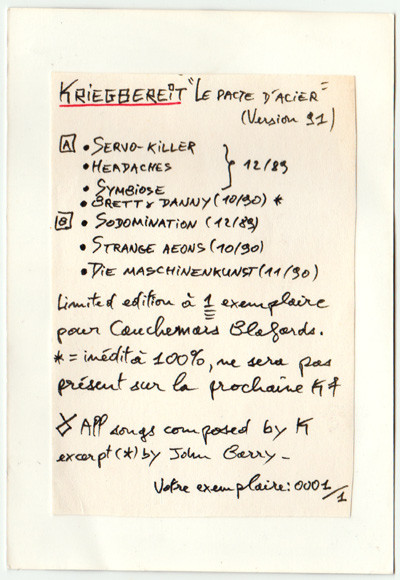 KRIEGBEREIT "LE PACTE D'ACIER"
(Version 91)
A • SERVO-KILLER
• HEADACHES } 12/89
• SYMBIOSE
• BRETT & DANNY (10/90) *
B • SODOMINATION (12/89)
• STRANGE AEONS (10/90)
• DIE MASCHINENKUNST (11/90)
Limited edition à 1 exemplaire
pour Cauchemars Blafards.
* = inédit à 100%, ne sera pas
présent sur la prochaine K7
All songs composed by K
excerpt (*) by John Barry_
Votre exemplaire: 0001/1